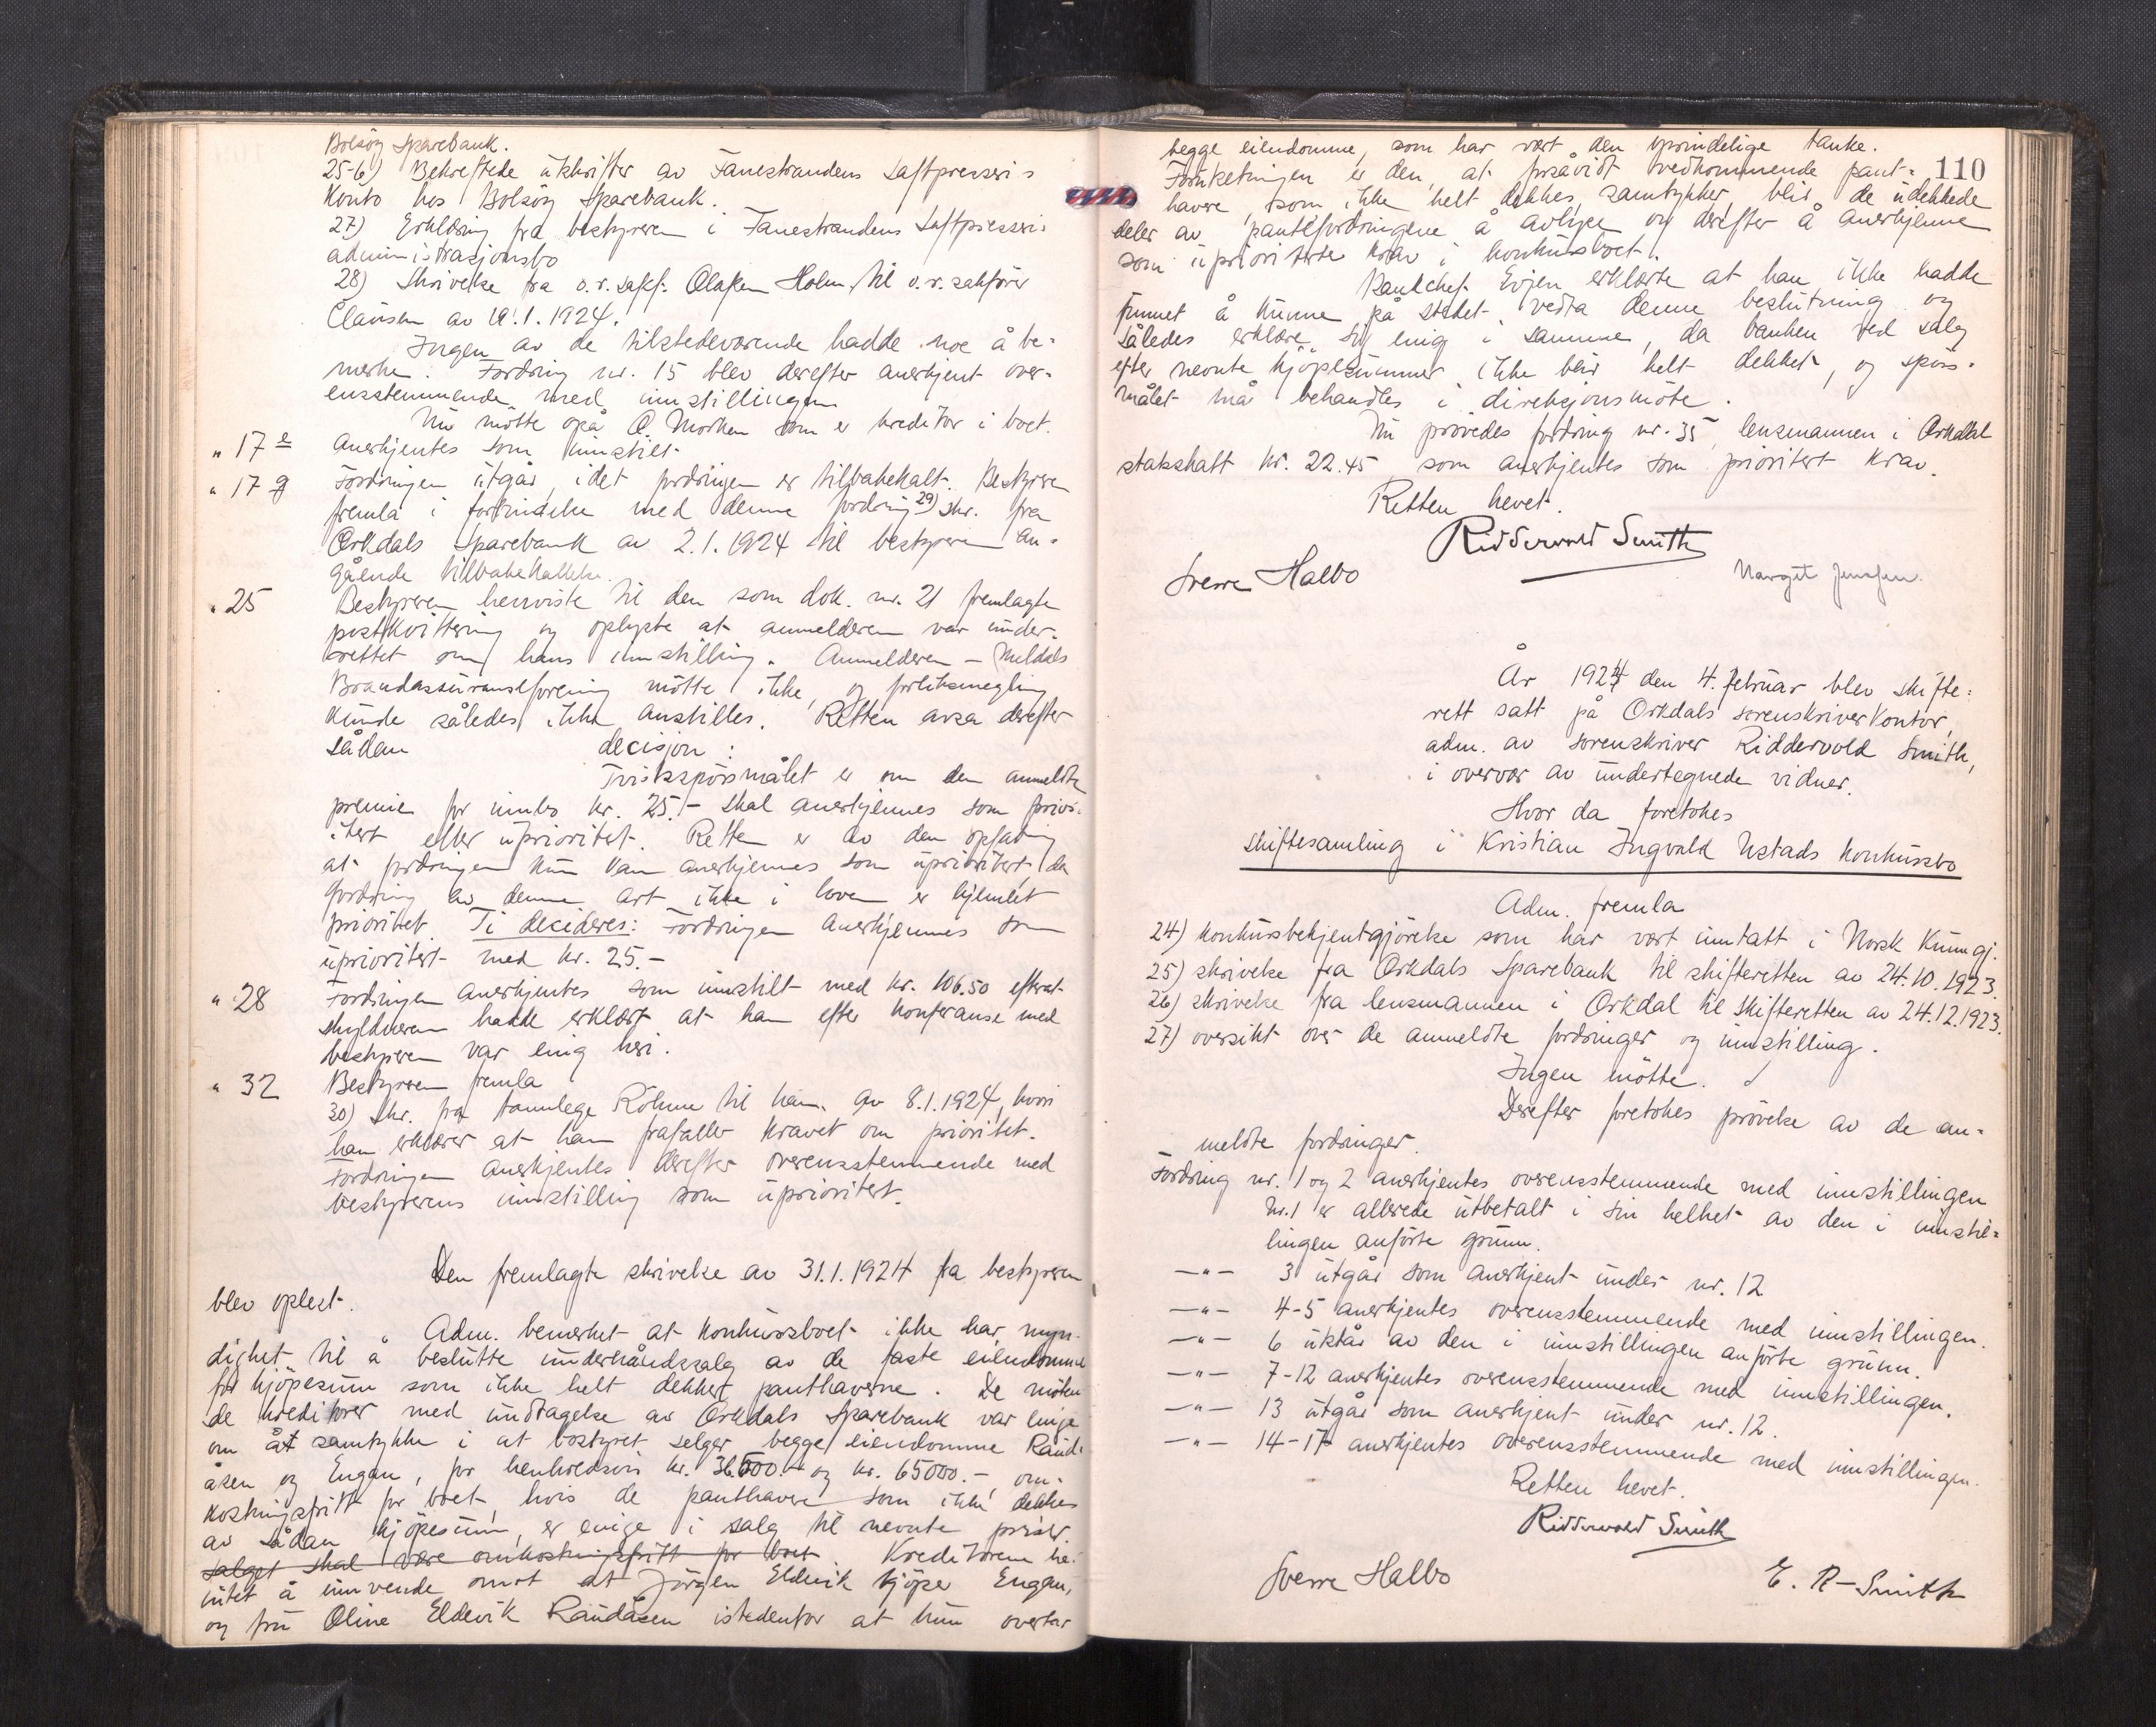 Bolsöy Sparebank.
25-6) Bekreftede utskrifter av Fanestrandens Saftpresseri s
konto hos Bolsöy Sparebank.
27) Erklæring fra bestyreren i Fanestrandens Saftpresseris
administrasjonsbo
28) Skrivelse fra o.r.sakf. Olafsen Holm til o.r. sakförer
Clausen av 19.1.1924.
Ingen av de tilstedeværende hadde noe å be-
merke. Fordring nr. 15 blev derefter anerkjent over-
ensstemmende med innstillingen
Nu mötte også O. Morken som er kreditor i boet.
" 17 e anerkjentes som innstilt.
" 17 g Fordringen utgår, idet fordringen er tilbakekalt. Bestyreren
fremla i forbindelse med denne fordring 29) skr. fra
Orkdals Sparebank av 2.1.1924 til bestyreren an-
gående tilbakekallelse.
" 25 Bestyreren henviste til den som dok. nr. 21 fremlagte
postkvittering og oplyste at anmelderen var under-
rettet om hans innstilling. Anmelderen - Meldals
Brandassuranseforening mötte ikke, og forliksmegling
kunde således ikke anstilles. Retten avsa derefter
sådan decisjon:
Tvistsspörsmålet er om den anmeldte
premie for innbo kr. 25.- skal anerkjennes som prior-
itert eller uprioritert. Retten er av den opfatning
at fordringen kun kan anerkjennes som uprioritert, da
fordring av denne art ikke i loven er hjemlet
prioritet. Ti decideres: Fordringen anerkjennes som
uprioritert med kr. 25.-
" 28 Fordringen anerkjentes som innstilt med kr. 106.50 efterat
skyldneren hadde erklært at han efter konferanse med
bestyreren var enig heri.
" 32 Bestyreren fremla
30) Skr. fra tannlege Röhme til ham av 8.1.1924, hvori
han erklærer at han frafaller kravet om prioritet.
Fordringen anerkjentes derefter overensstemmende med
bestyrerens innstilling som uprioritert.
Den fremlagte skrivelse av 31.1.1924 fra bestyreren
blev oplest.
Adm. bemerket at konkursboet ikke har myn-
dighet til å beslutte underhåndssalg av de faste eiendomme
for kjöpesum som ikke helt dekker panthaverne. De möten
de kreditorer med undtagelse av Orkdals Sparebank var enige
om åt samtykke i at bostyret selger begge eiendomme Raud-
åsen og Engan, for henholdsvis kr. 36500.- og kr. 65000.-, om-
kostningsfritt for boet, hvis de panthavere som ikke dekkes
av sådan kjöpesum, er enige i salg til nevnte priser.
salget skal være omkostningsfritt for boet. Kreditorene har
intet å innvende imot at Jörgen Eldevik kjöper Engan,
og fru Oline Eldevik Raudåsen istedenfor at hun overtar
110
begge eiendomme, som har vært den oprindelige tanke.
Forutsetningen er den, at forsåvidt vedkommende pant-
havere, som ikke helt dekkes, samtykker, blir de udekkede
deler av pantefordringene å avlyse og derefter å anerkjenne
som uprioriterte krav i konkursboet.
Bankchef Evjen erklærte at han ikke hadde
funnet å kunne på stedet vedta denne beslutning og
således erklære sig enig i samme, da banken ved salg
efter nevnte kjöpesummer ikke blir helt dekket, og spörs-
målet må behandles i direksjonsmöte.
Nu prövedes fordring nr. 35, lensmannen i Orkdal
statsskatt kr. 22.45 som anerkjentes som prioritert krav.
Retten hevet.
Ridderwold Smith
Sverre Halbo
Margit Jenssen.
År 1924 den 4. februar blev skifte-
rett satt på Orkdals sorenskriverkontor,
adm. av sorenskriver Riddervold Smith,
i overvær av undertegnede vidner.
Hvor da foretokes
skiftesamling i Kristian Ingvald Ustads konkursbo
Adm. fremla
24) konkursbekjentgjörelse som har vært inntatt i Norsk Kunngj.
25) skrivelse fra Orkdals Sparebank til skifteretten av 24.10.1923.
26) skrivelse fra lensmannen i Orkdal til skifteretten av 24.12.1923.
27) oversikt over de anmeldte fordringer og innstilling.
Ingen mötte.
Derefter foretokes prövelse av de an-
meldte fordringer.
Fordring nr. 1 og 2 anerkjentes overensstemmende med innstillingen
Nr. 1 er allerede utbetalt i sin helhet av den i innstil-
lingen anförte grunn.
-"- 3 utgår som anerkjent under nr. 12
-"- 4-5 anerkjentes overensstemmende med innstillingen.
-"- 6 utgår av den i innstillingen anförte grunn.
-"- 7-12 anerkjentes overensstemmende med innstillingen.
-"- 13 utgår som anerkjent under nr. 12.
-"- 14-17 anerkjentes overensstemmende med innstillingen.
Retten hevet.
Ridderwold Smith
Sverre Halbo
E. R-Smith